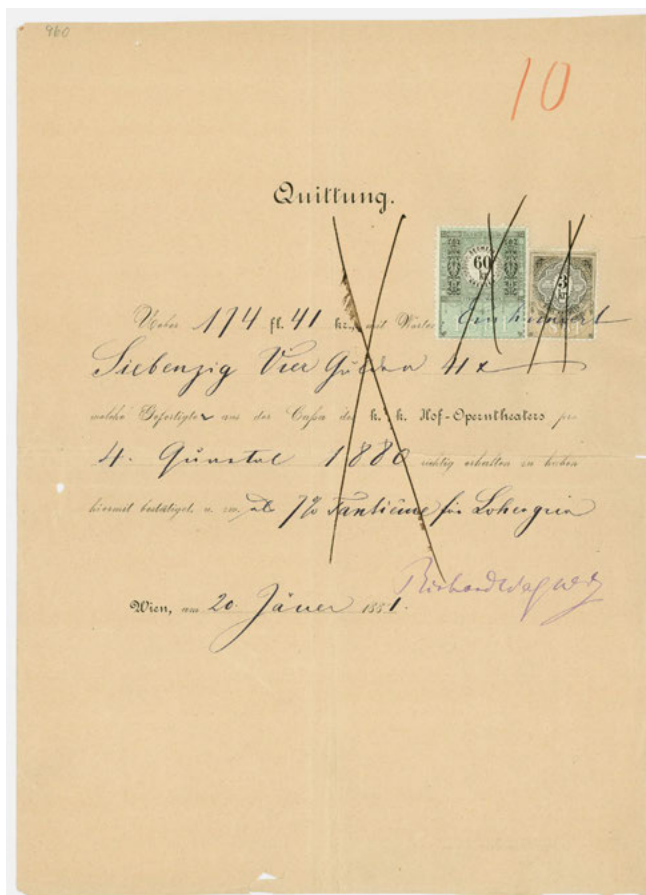 960
10
Quittung.
60 kr
3 kr
Ueber 174 fl. 41 kr., mit Worten Ein hundert
Siebenzig Vier Gulden 41 x
welche Gefertigter aus der Cassa des k. k. Hof-Operntheaters pro
4. Quartal 1880 richtig erhalten zu haben
hiermit bestätiget, u. zw. als 7% Tantième für Lohengrin
Wien, am 20. Jäner 1881.
Richard Wagner